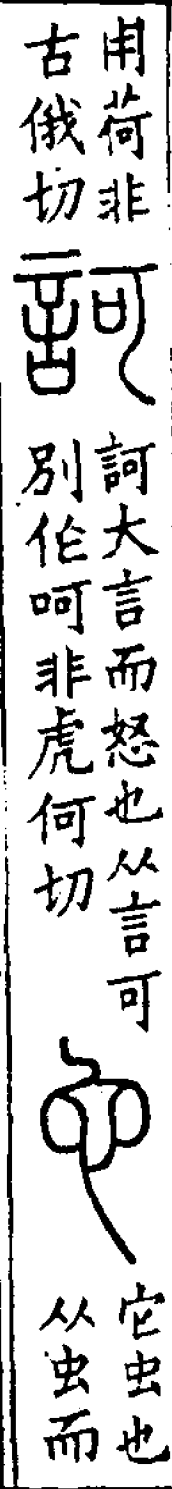 用荷非
古俄切
訶
訶大言而怒也从言可
別作呵非虎何切
它
它虫也
从虫而